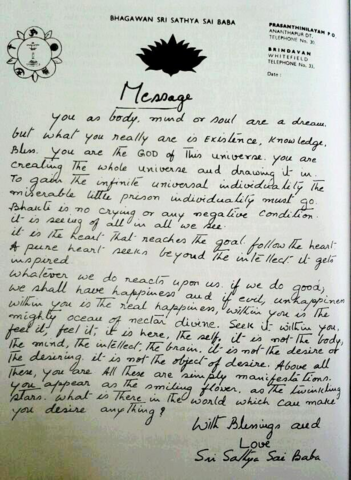 BHAGAWAN SRI SATHYA SAI BABA
PRASANTHINILAYAM P.O.
ANANTHAPUR DT.
TELEPHONE No. 31.
BRINDAVAN
WHITEFIELD
TELEPHONE No. 33.
Date :
Message
You as body, mind or soul are a dream.
but what you really are is Existence, Knowledge,
Bliss. you are the GOD of this universe. you are
creating the whole universe and drawing it in.
To gain the infinite universal individuality the
miserable little prison individuality must go.
Bhakti is no crying or any negative condition.
it is seeing of all in all we see.
it is the heart that reaches the goal. follow the heart.
A pure heart seeks beyond the intellect. it gets
inspired
Whatever we do reacts upon us. if we do good,
we shall have happiness and if evil, unhappiness
within you is the real happiness, within you is the
mighty ocean of nectar divine. Seek it within you,
feel it, feel it, it is here, the self, it is not the body,
the mind, the intellect, the brain, it is not the desire of
the desiring. it is not the object of desire. Above all
these, you are. All these are simply manifestations.
you appear as the smiling flower, as the twinkling
stars. what is there in the world which can make
you desire anything?
With Blessings and
Love
Sri Sathya Sai Baba